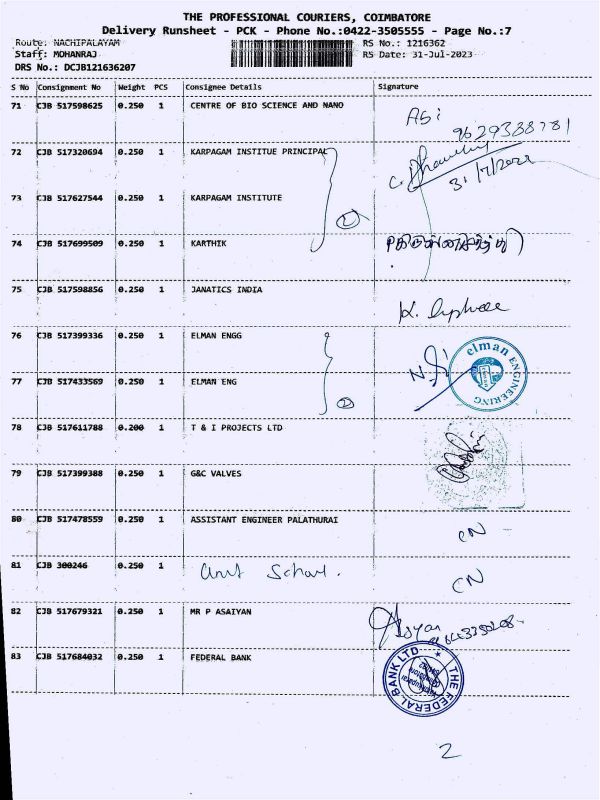 THE PROFESSIONAL COURIERS, COIMBATORE
Delivery Runsheet - PCK - Phone No.:0422-3505555 - Page No.:7
Route: NACHIPALAYAM RS No.: 1216362
Staff: MOHANRAJ RS Date: 31-Jul-2023
DRS No.: DCJB121636207
S No Consignment No Weight PCS Consignee Details Signature
71 CJB 517598625 0.250 1 CENTRE OF BIO SCIENCE AND NANO
9629388781
72 CJB 517320694 0.250 1 KARPAGAM INSTITUE PRINCIPAL
73 CJB 517627544 0.250 1 KARPAGAM INSTITUTE
2
74 CJB 517699509 0.250 1 KARTHIK
75 CJB 517598856 0.250 1 JANATICS INDIA
76 CJB 517399336 0.250 1 ELMAN ENGG
elman ENGINEERING
77 CJB 517433569 0.250 1 ELMAN ENG
2
78 CJB 517611788 0.200 1 T & I PROJECTS LTD
79 CJB 517399388 0.250 1 G&C VALVES
80 CJB 517478559 0.250 1 ASSISTANT ENGINEER PALATHURAI CN
81 CJB 300246 0.250 1 CN
82 CJB 517679321 0.250 1 MR P ASAIYAN
83 CJB 517684032 0.250 1 FEDERAL BANK
THE FEDERAL BANK LTD
2